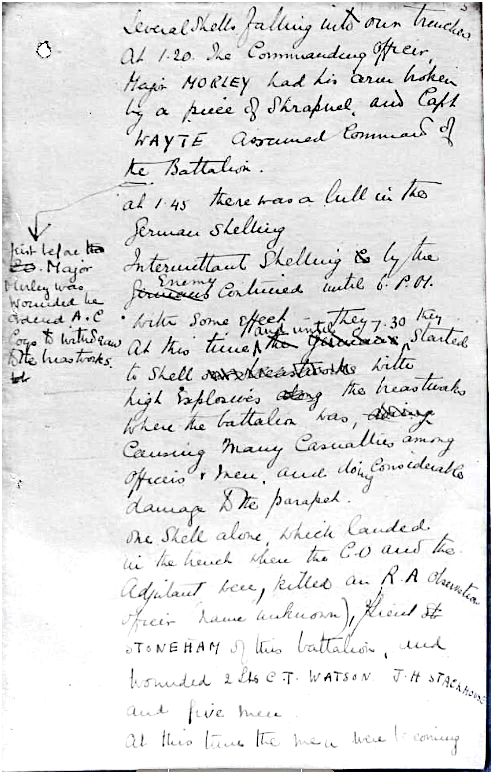 Several Shells falling into our trenches
At 1.20. The Commanding Officer,
Major MORLEY had his arm broken
by a piece of Shrapnel, and Capt
WAYTE assumed Command of
the Battalion.
at 1.45 there was a lull in the
German Shelling
Intermittant Shelling by the
Enemy
Germans Continued until 6. P.M.
with Some effect
and until 7.30 they
At this time, they the Germans, Started
to Shell our breastworks with
high Explosives along the breastworks
where the battalion was,
Causing Many Casualties among
Officers & men, and doing Considerable
damage to the parapet.
One Shell alone, which landed
in the trench where the C.O and the
Adjutant were, killed an R.A Observation
Officer name unknown), Lieut
STONEHAM of this battalion, and
wounded 2 Lts C.T. WATSON J.H STACKHOUSE
and five men.
At this time the men were becoming
just before the
Co. Major
Morley was
wounded he
ordered A.C
Coys to withdraw
to the breastworks.